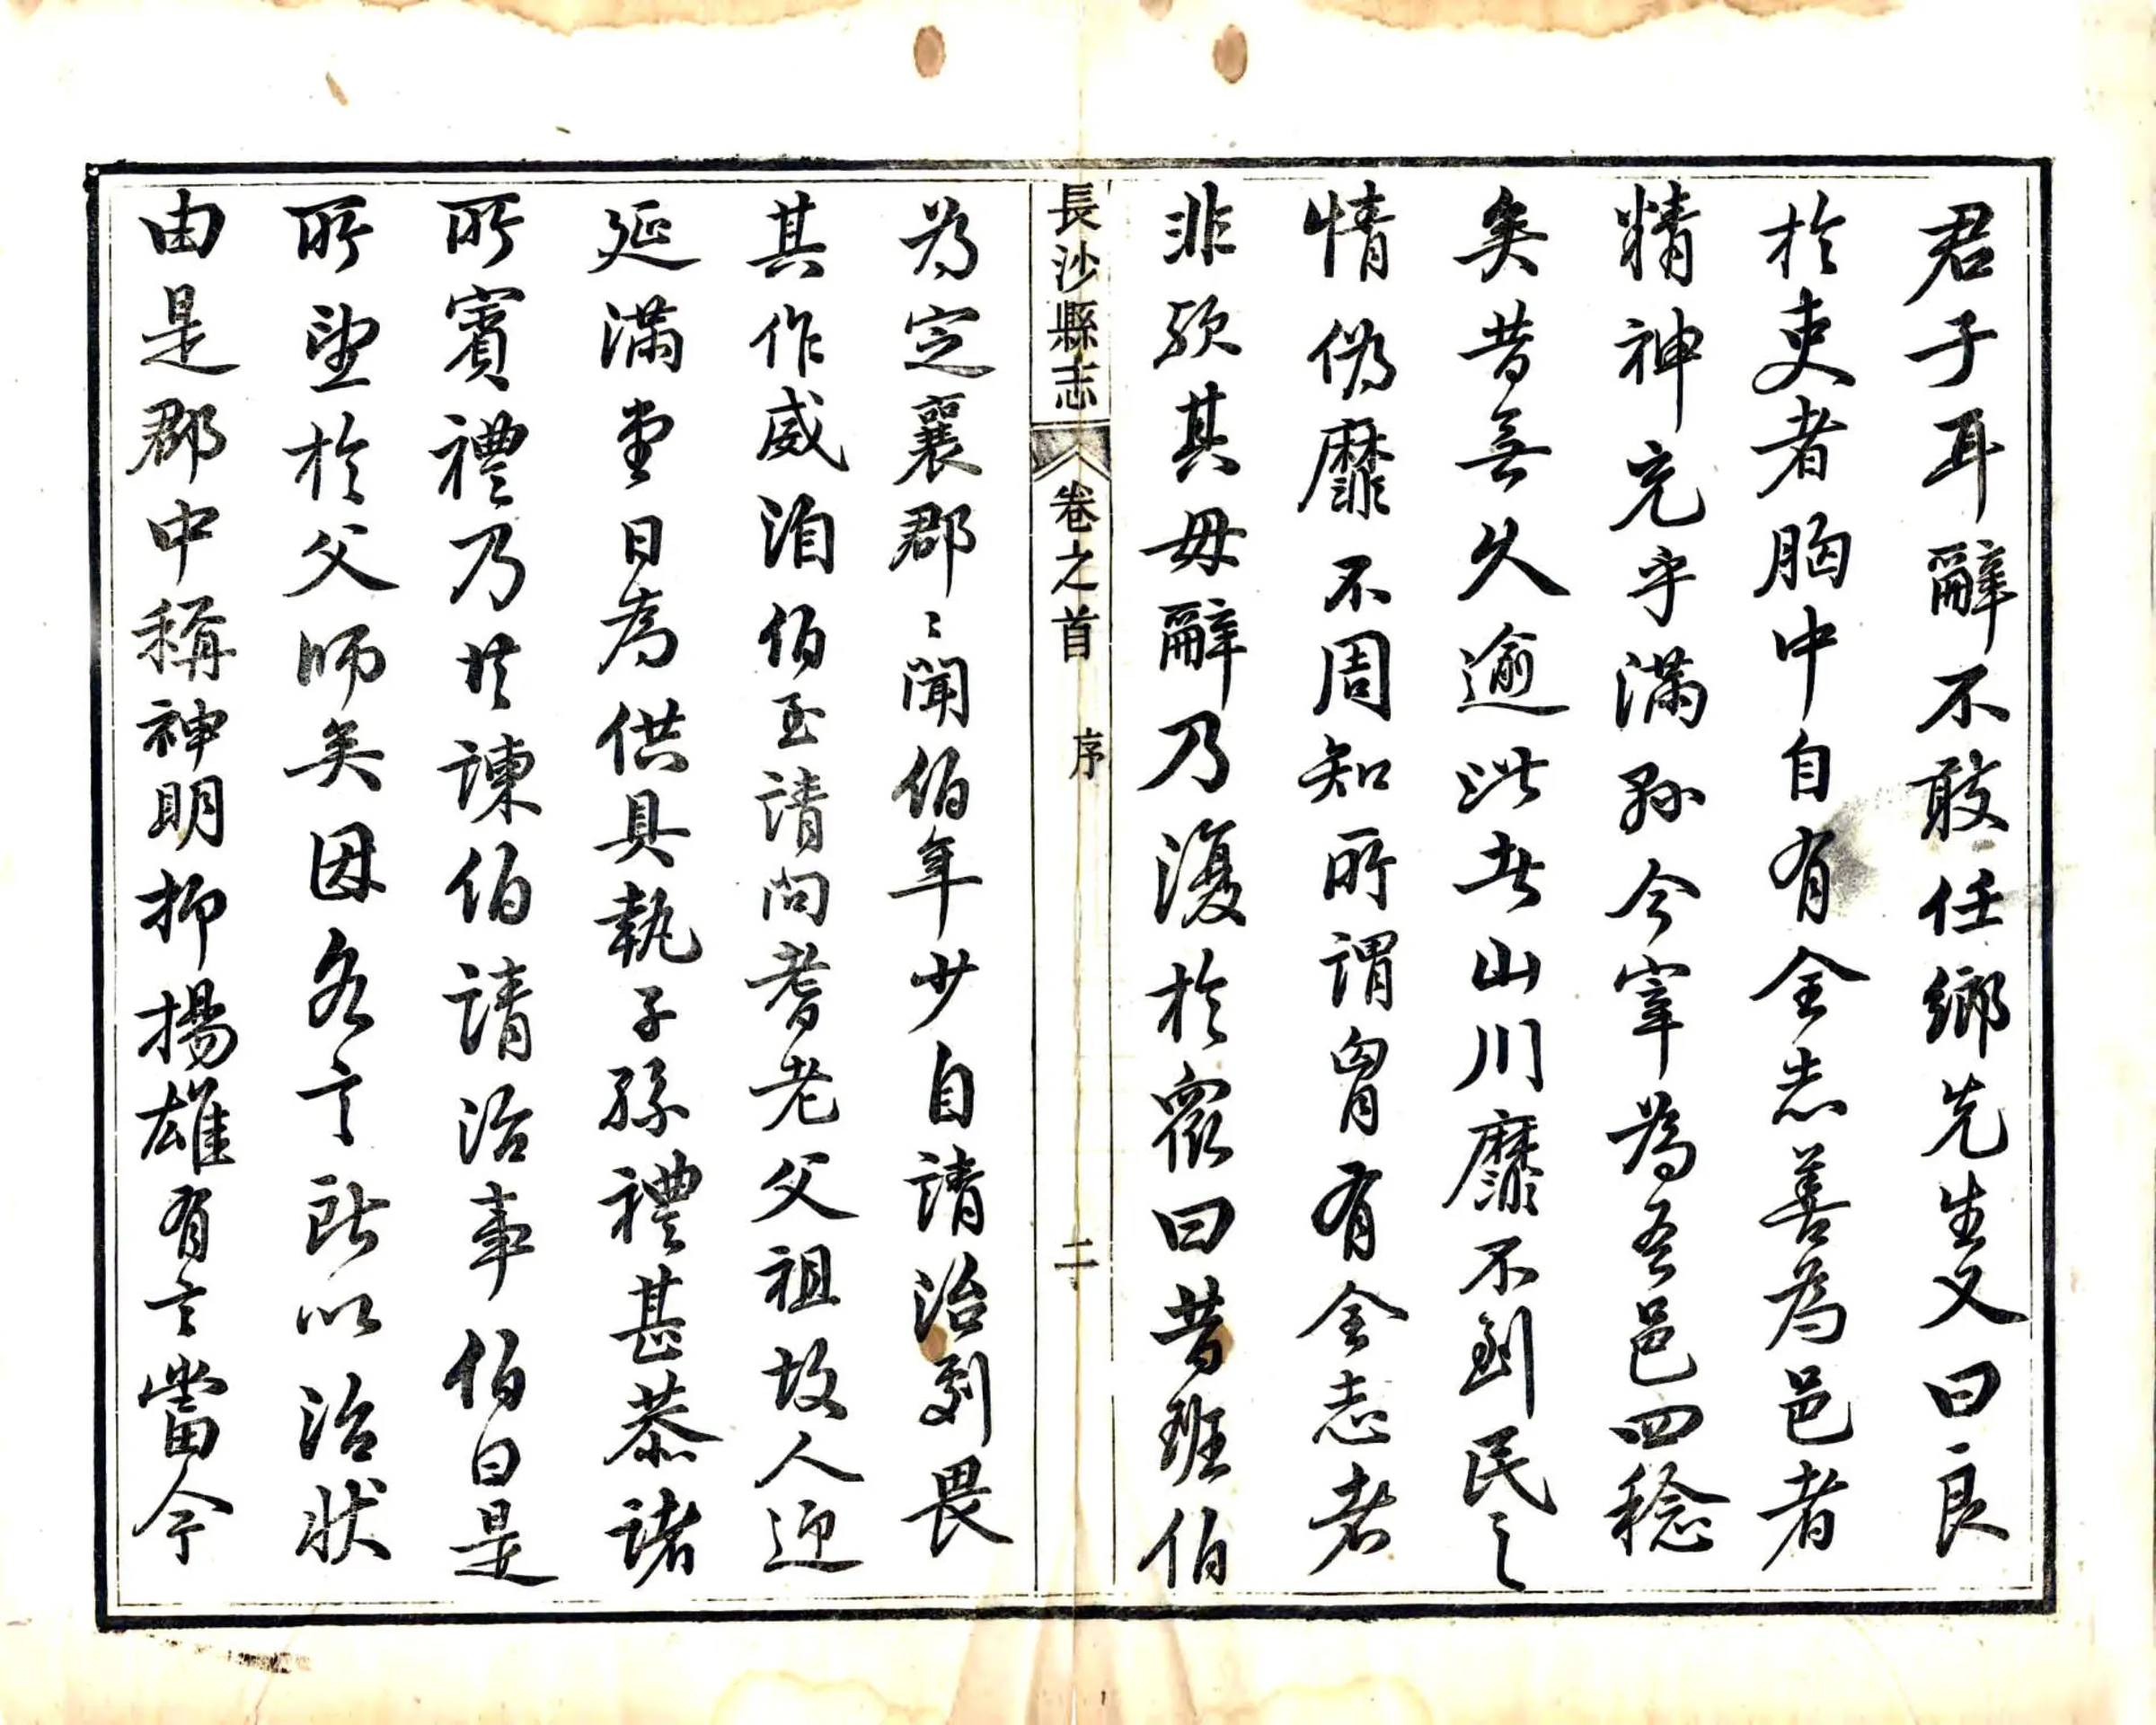 君子耳辭不敢任鄉先生又曰良
於吏者胸中自有全志善為邑者
精神充乎滿孫今宰為吾邑四稔
矣昔無久逾此者山川靡不到民之
情偽靡不周知所謂胷有全志者
非歟其毋辭乃復於眾曰昔班伯
長沙縣志 卷之首 序 二
為定襄郡〻聞伯年少自請治劇畏
其作威洎伯至請問耆老父祖故人迎
延滿堂日為供具執子孫禮甚恭諸
所賓禮乃共諫伯請治事伯曰是
所望於父師矣因各言所以治狀
由是郡中稱神明抑揚雄有言當今